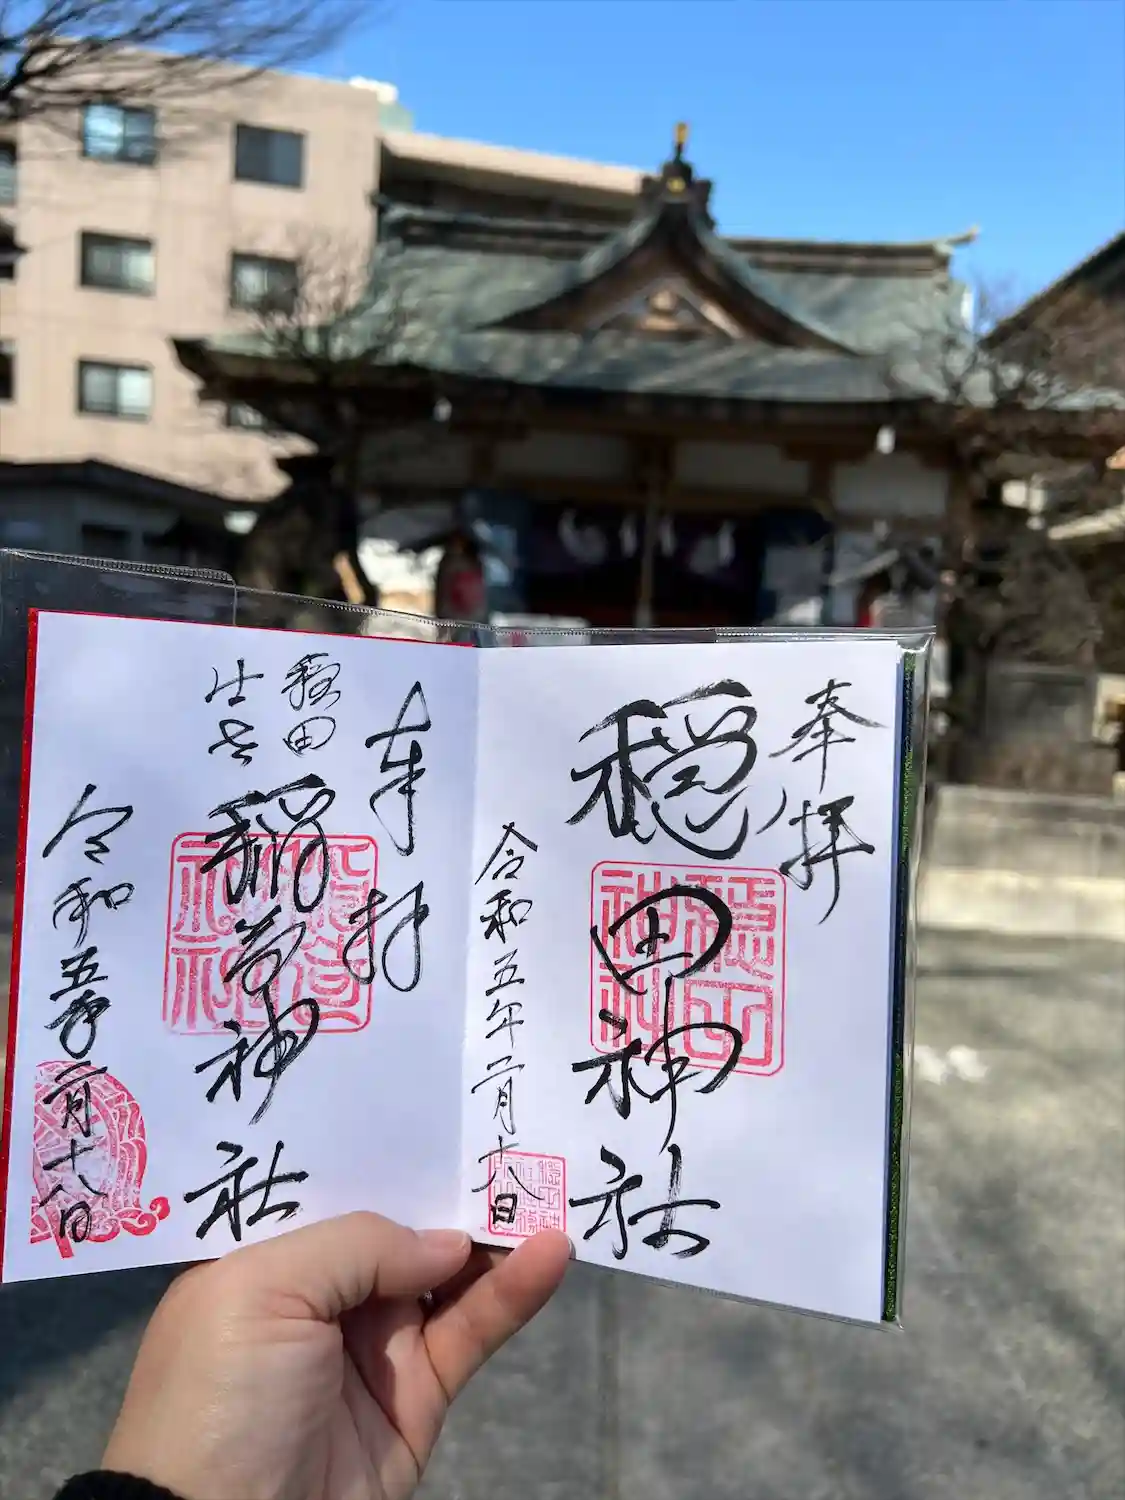 奉拝
穏田神社
令和五年二月十八日
奉拝
穏田
稲荷神社
令和五年二月十八日